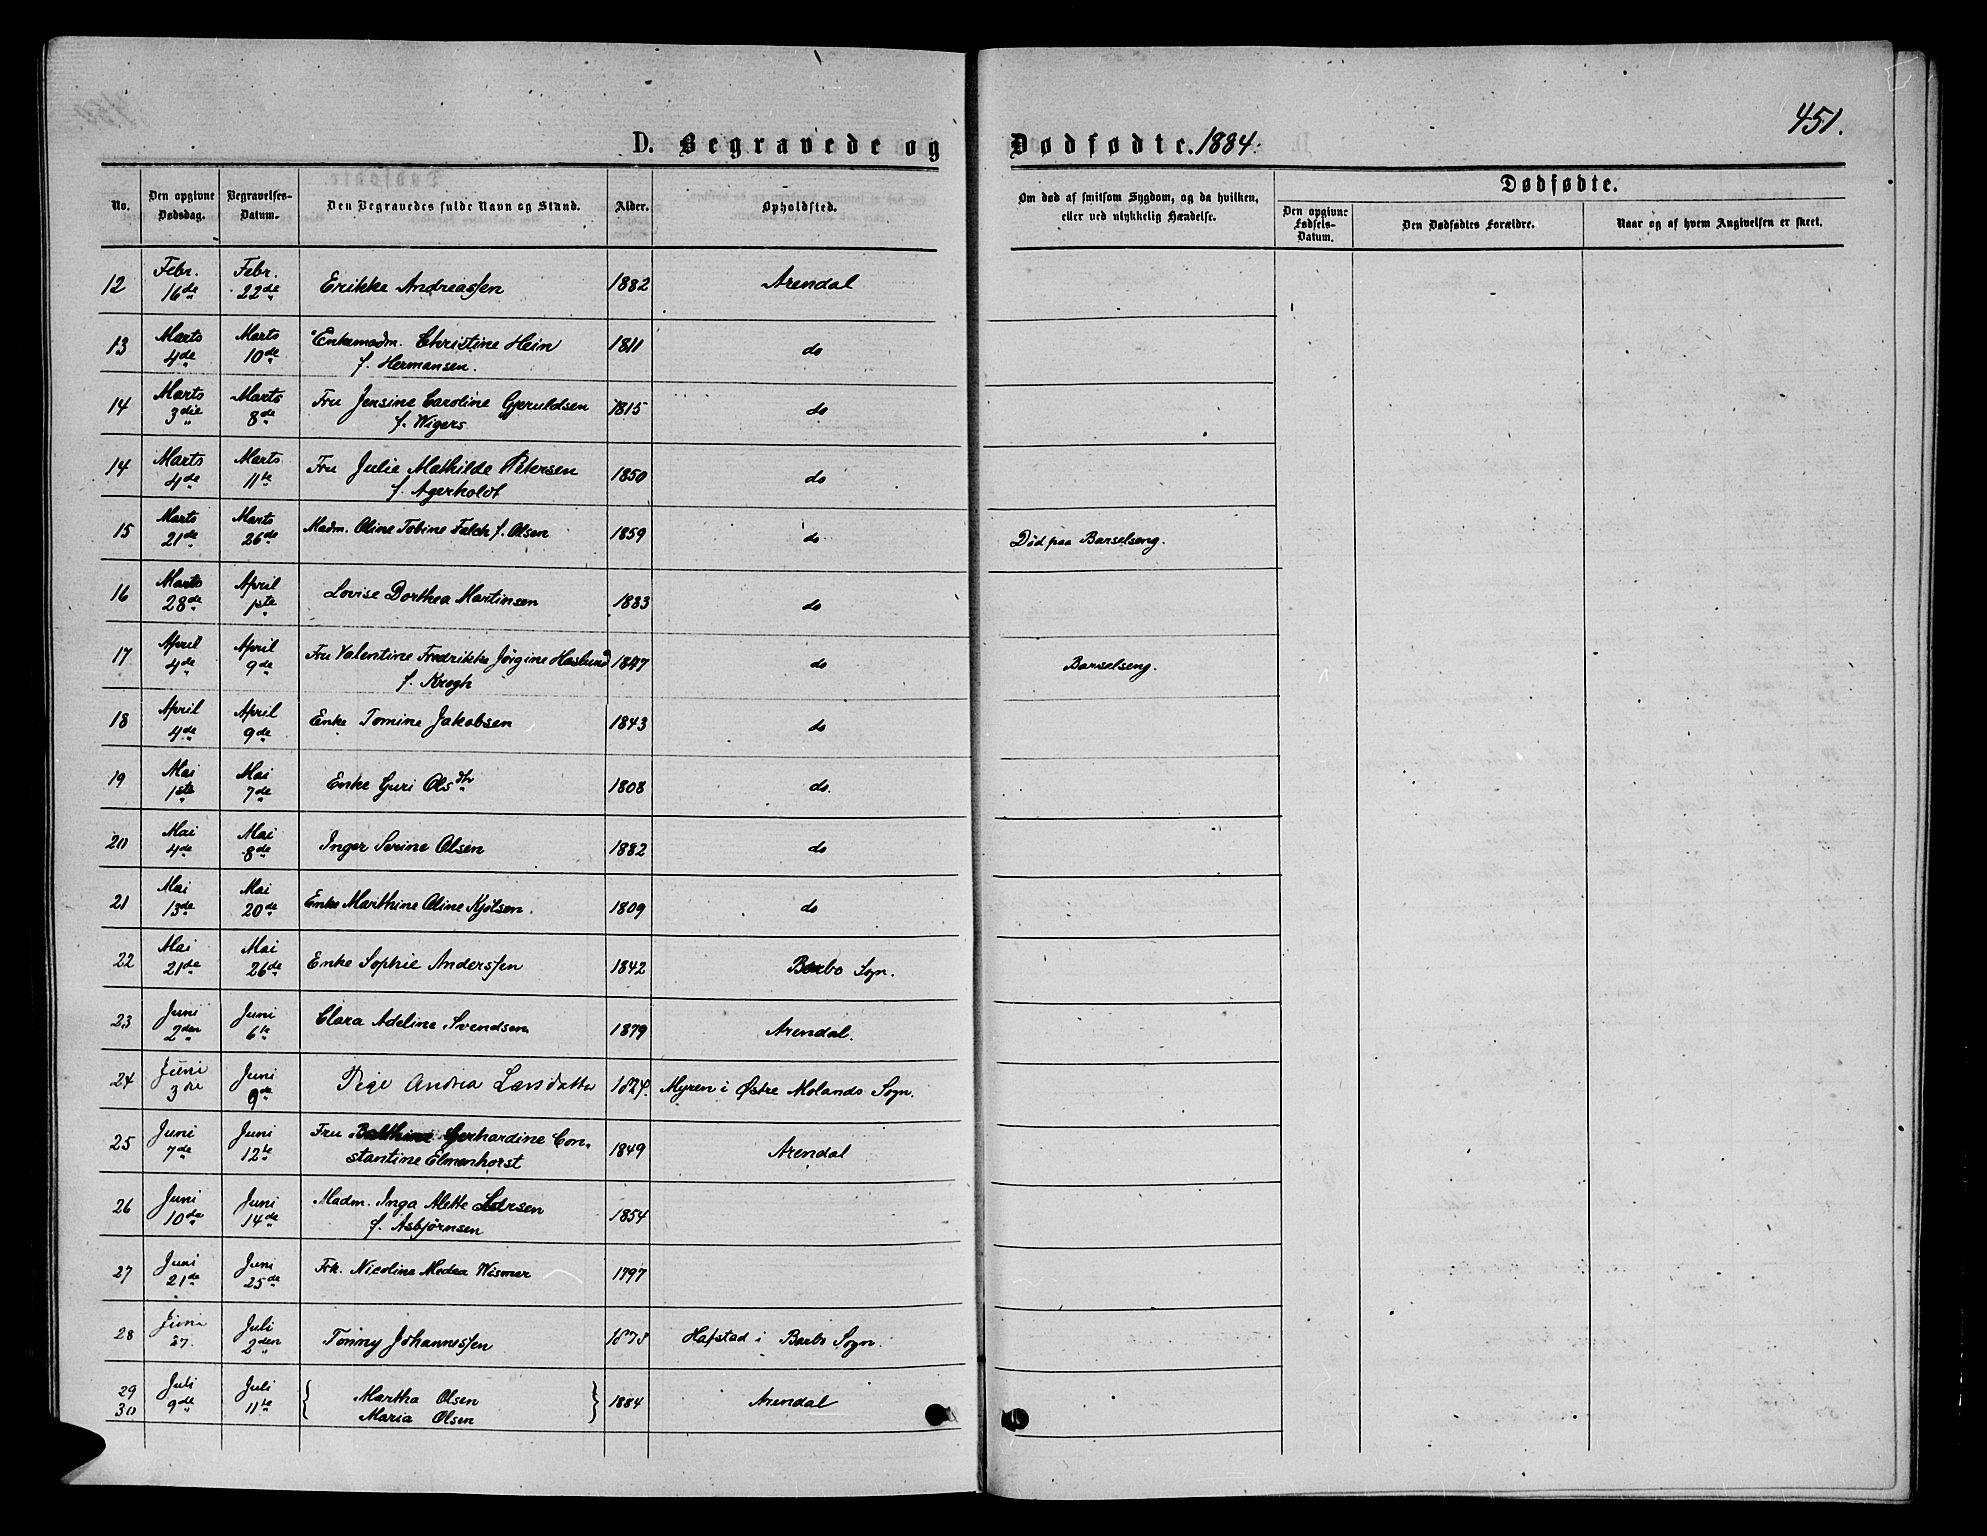 451.
D. Begravede og Dødfødte. 1884.
No. | Den opgivne Dødsdag. | Begravelses-Datum. | Den Begravedes fulde Navn og Stand. | Alder. | Opholdsted. | Om død af smitsom Sygdom, og da hvilken, eller ved ulykkelig Hændelse. | Dødfødte.
Den opgivne Fødsels-Datum. | Den Dødfødtes Forældre. | Naar og af hvem Angivelsen er skeet.
12 | Febr. 16de | Febr. 22de | Erikke Andreassen | 1882 | Arendal
13 | Marts 4de | Marts 10de | Enkemadm. Christine Hein f. Hermansen. | 1811 | do
14 | Marts 3die | Marts 8de | Fru Jensine Caroline Gjeruldsen f. Wigers | 1815 | do
14 | Marts 4de | Marts 11te | Fru Julie Mathilde Petersen f. Agerholdt | 1850 | do
15 | Marts 21de | Marts 26de | Madm. Oline Tobine Falch f. Olsen | 1859 | do | Død paa Barselseng.
16 | Marts 28de | April 1ste | Lovise Dorthea Martinsen | 1883 | do
17 | April 4de | April 9de | Fru Valentine Fredrikke Jørgine Haslund f. Krogh | 1847 | do | Barselseng.
18 | April 4de | April 9de | Enke Tomine Jakobsen | 1843 | do
19 | Mai 1ste | Mai 7de | Enke Guri Olsdtr | 1808 | do.
20 | Mai 4de | Mai 8de | Inger Serine Olsen | 1882 | do
21 | Mai 13de | Mai 20de | Enke Marthine Oline Kjølsen. | 1809 | do
22 | Mai 21de | Mai 26de | Enke Sophie Anderssen | 1842 | Barbo Sogn.
23 | Juni 2den | Juni 6te | Clara Adeline Svendsen | 1879 | Arendal.
24 | Juni 3die | Juni 9de | Pige Andrea Larsdatter | 1824. | Myren i Østre Molands Sogn.
25 | Juni 7de | Juni 12te | Fru Gerhardine Constantine Elmenhorst | 1849 | Arendal
26 | Juni 10de | Juni 14de | Madm. Inga Alette Larsen f. Asbjørnsen | 1854
27 | Juni 21de | Juni 25de | Frk. Nicoline Medea Wismer | 1797
28 | Juni 27. | Juli 2den | Tonny Johannessen | 1878 | Hafstad i Barbo Sogn.
29 30 | Juli 9de | Juli 11te | { Martha Olsen Maria Olsen } | 1884 | Arendal